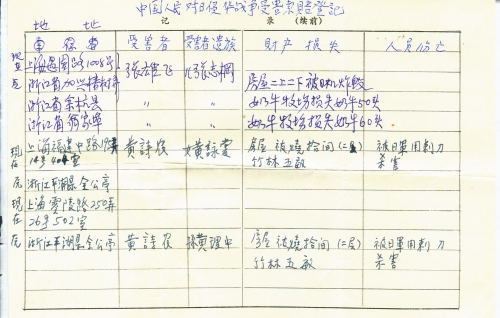 中国人民对日侵华战争受害索赔登记
记 录 (续前)
地 址 受害者 受害者遗族 财产 损失 人员伤亡
上海 愚园路1008号 张雄飞 张志桐
浙江省加兴 房屋二上二下被日机炸毁
浙江省余杭县 〃 〃 奶牛牧场损失奶牛50头
浙江省 〃 〃 奶牛牧场损失奶牛60头
现 上海福建中路
在 14号404室 黄詩 黄詠雯 房屋被燒拾间(二层) 被日軍用刺刀
竹林五畝 杀害
浙江平湖县全公亭
现 上海零陵路250弄
在 26号502室
浙江平湖县全公亭 黄詩 黄理中 房屋被燒拾间(二层) 被日軍用刺刀
竹林五畝 杀害